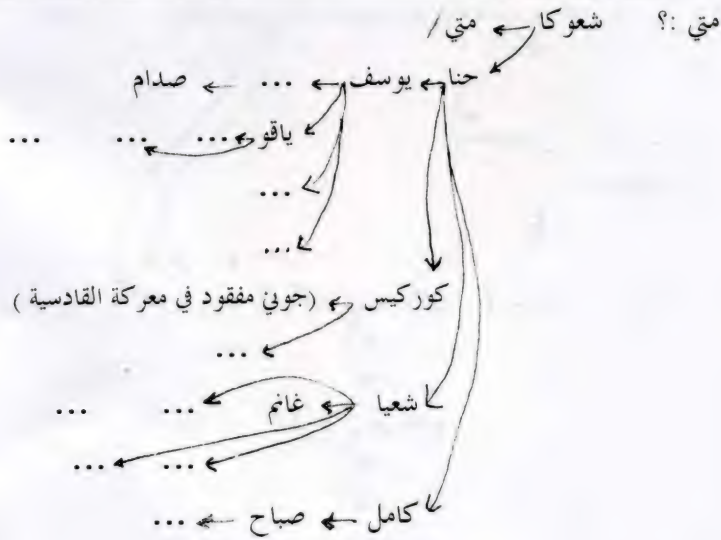 متي :؟ شعوكا متي /
حنا يوسف ... صدام
ياقو ... ... ...
...
...
كوركيس (جوني مفقود في معركة القادسية)
...
شعيا غانم ... ...
... ...
كامل صباح ...